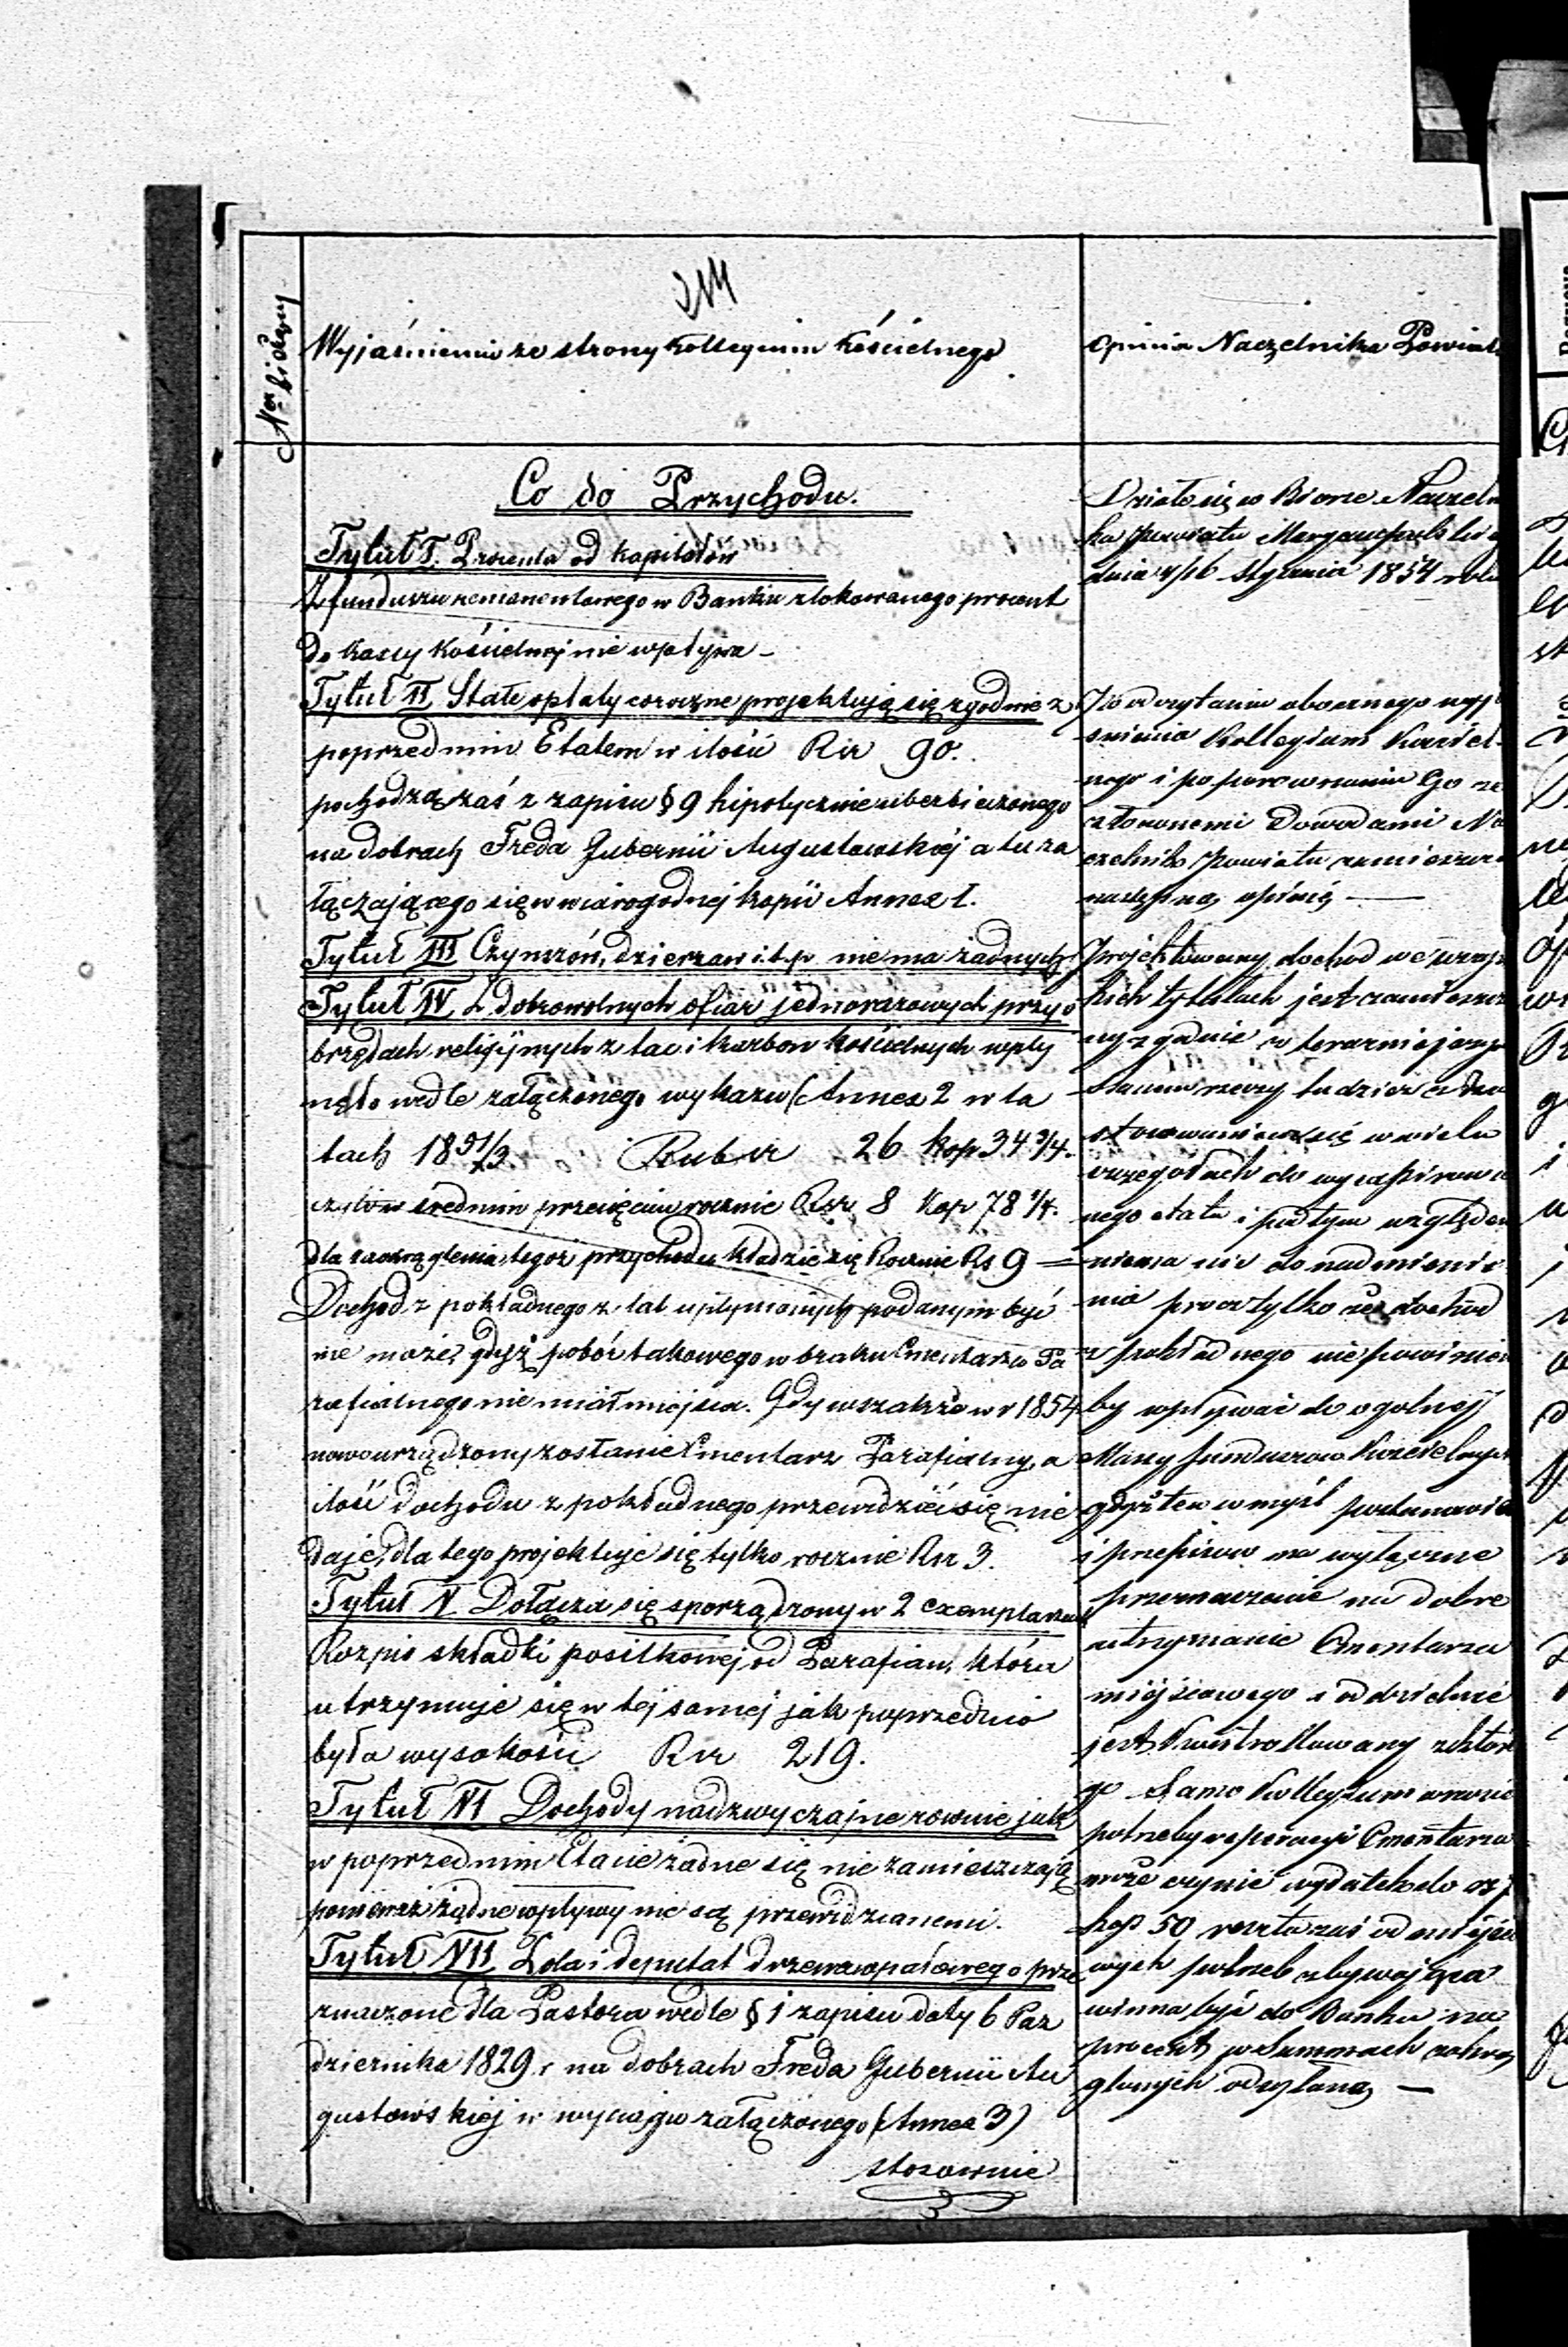 214
Nr bieżący
Wyjaśnienie ze strony Kollegium Kościelnego
Co do Przychodu.
Tytuł I. Procenta od kapitałów
Z funduszu remanentowego w Banku zlokowanego procent
do kassy Kościelnej nie wpływa –
Tytuł II Stałe opłaty coroczne projektują się zgodnie z
poprzednim Etatem w ilości Rsr 90.
pochodzą zaś z zapisu § 9 hipotycznie ubezbieczonego
na dobrach Freda Gubernii Augustowskiej a tu za
łączającego się w wiarogodnej kopii Annex 1.
Tytuł III Czynszów, dzierzaw i.t.p nie ma żadnych
Tytuł IV Z dobrowolnych ofiar jednorazowych przy o
brzędach religijnych z tac i karbon kościelnych wpły
nęło wedle załączonego wykazu (Annex 2 w la
tach 1851/3 Rub sr 26 kop 34 3/4.
czyli w średnim przecięciu rocznie Rsr 8 Kop 78 1/4.
dla zaokrąglenia tegoż przychodu kładzie się Rocznie Rs 9 –
Dochod z pokładnego z lat upłynionych podanym być
nie może, gdyż pobór takowego w braku Cmentarza Pa
rafialnego nie miał miejsca. Gdy wszakże w r 1854
nowo urządzony zostanie Cmentarz Parafialny, a
ilość dochodu z pokładnego przewidzieć się nie
daje, dla tego projektuje się tylko rocznie Rsr 3.
Tytuł V Dołącza się sporządzony w 2 exemplarzach
Rozpis składki posiłkowej od Parafian, która
utrzymuje się w tej samej jak poprzednio
była wysokości Rsr 219.
Tytuł VI Dochody nadzwyczajne rownie jak
w poprzednim Etacie żadne się nie zamieszczają
ponieważ żadne wpływy nie są przewidzianemi.
Tytuł VII Zola i deputat drzewa opałowego prze
znaczone dla Pastora wedle § 1 zapisu daty 6 Paz
dziernika 1829 r na dobrach Freda Gubernii Au
gustowskiej w wyciągu załączonego (Annex 3)
stosownie
Opinia Naczelnika Powiatu
Działo się w Biorze Naczelni
ka Powiatu Maryampolskiego
dnia 4/16 Stycznia 1854 roku
Po odczytaniu obecnego wyj
snienia Kollegium Kosciel
nego i po porownaniu Go ze
złożonemi Dowodami Na
czelnik Powiatu zamieszcza
następną opinię —
Projektowany dochod we wszyst
kich tytułach jest zamieszczo
ny zgodnie w teraźniejszym
stanem rzeczy tudzież a
stosowaniem się w wielu
szczegołach do wyexpirowa
nego etatu i pod tym względem
niema nic do nadmienie
nia procz tylko że dochod
z pokładnego nie powinien
by wpływać do ogolnej
Massy funduszow Koscielnych
gdyż ten w myśl postanowień
i przepisow ma wyłączne
przeznaczenie na dobre
utrzymanie Cmentarza
miejscowego i oddzielnie
jest kontrollowany z ktore
go Samo Kollegium w razie
potrzeby reperacyi Cmentarza
może czynić wydatek do rsr 7
kop 50 reszta zaś od miejsco
wych potrzeb zbywająca
winna być do Banku na
procent w Summach zaokrą
glonych odesłana —